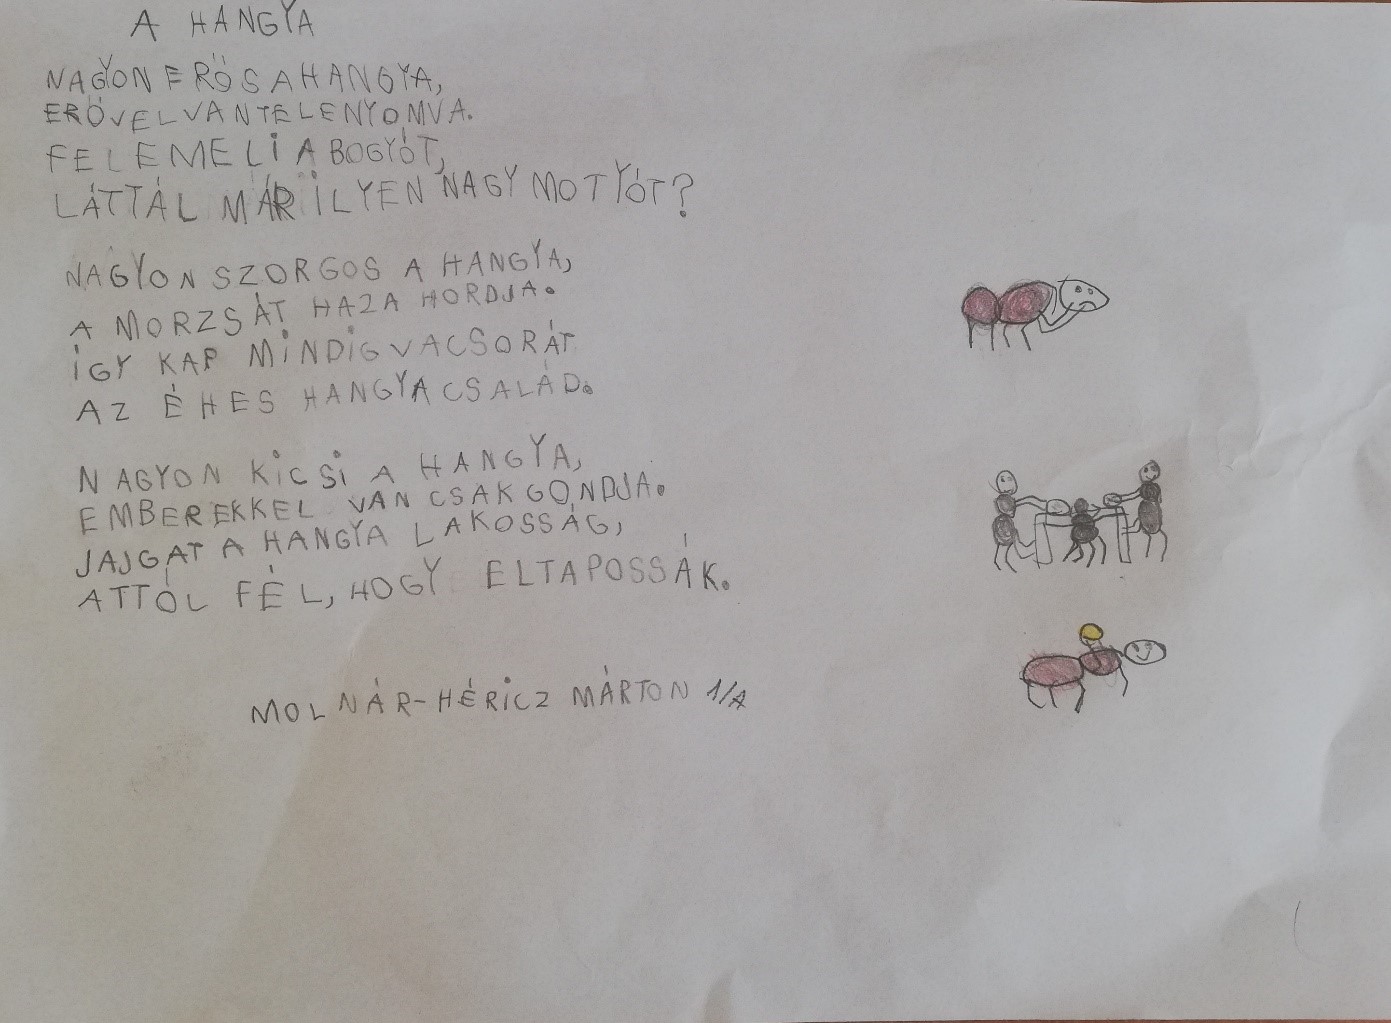 A HANGYA
NAGYON ERŐS A HANGYA,
ERŐVEL VAN TELENYOMVA.
FELEMELI A BOGYÓT,
LÁTTÁL MÁR ILYEN NAGY MOTYÓT?
NAGYON SZORGOS A HANGYA,
A MORZSÁT HAZA HORDJA.
ÍGY KAP MINDIG VACSORÁT
AZ ÉHES HANGYACSALÁD.
NAGYON KICSI A HANGYA,
EMBEREKKEL VAN CSAK GONDJA.
JAJGAT A HANGYA LAKOSSÁG,
ATTÓL FÉL, HOGY ELTAPOSSÁK.
MOLNÁR-HÉRICZ MÁRTON 1/A